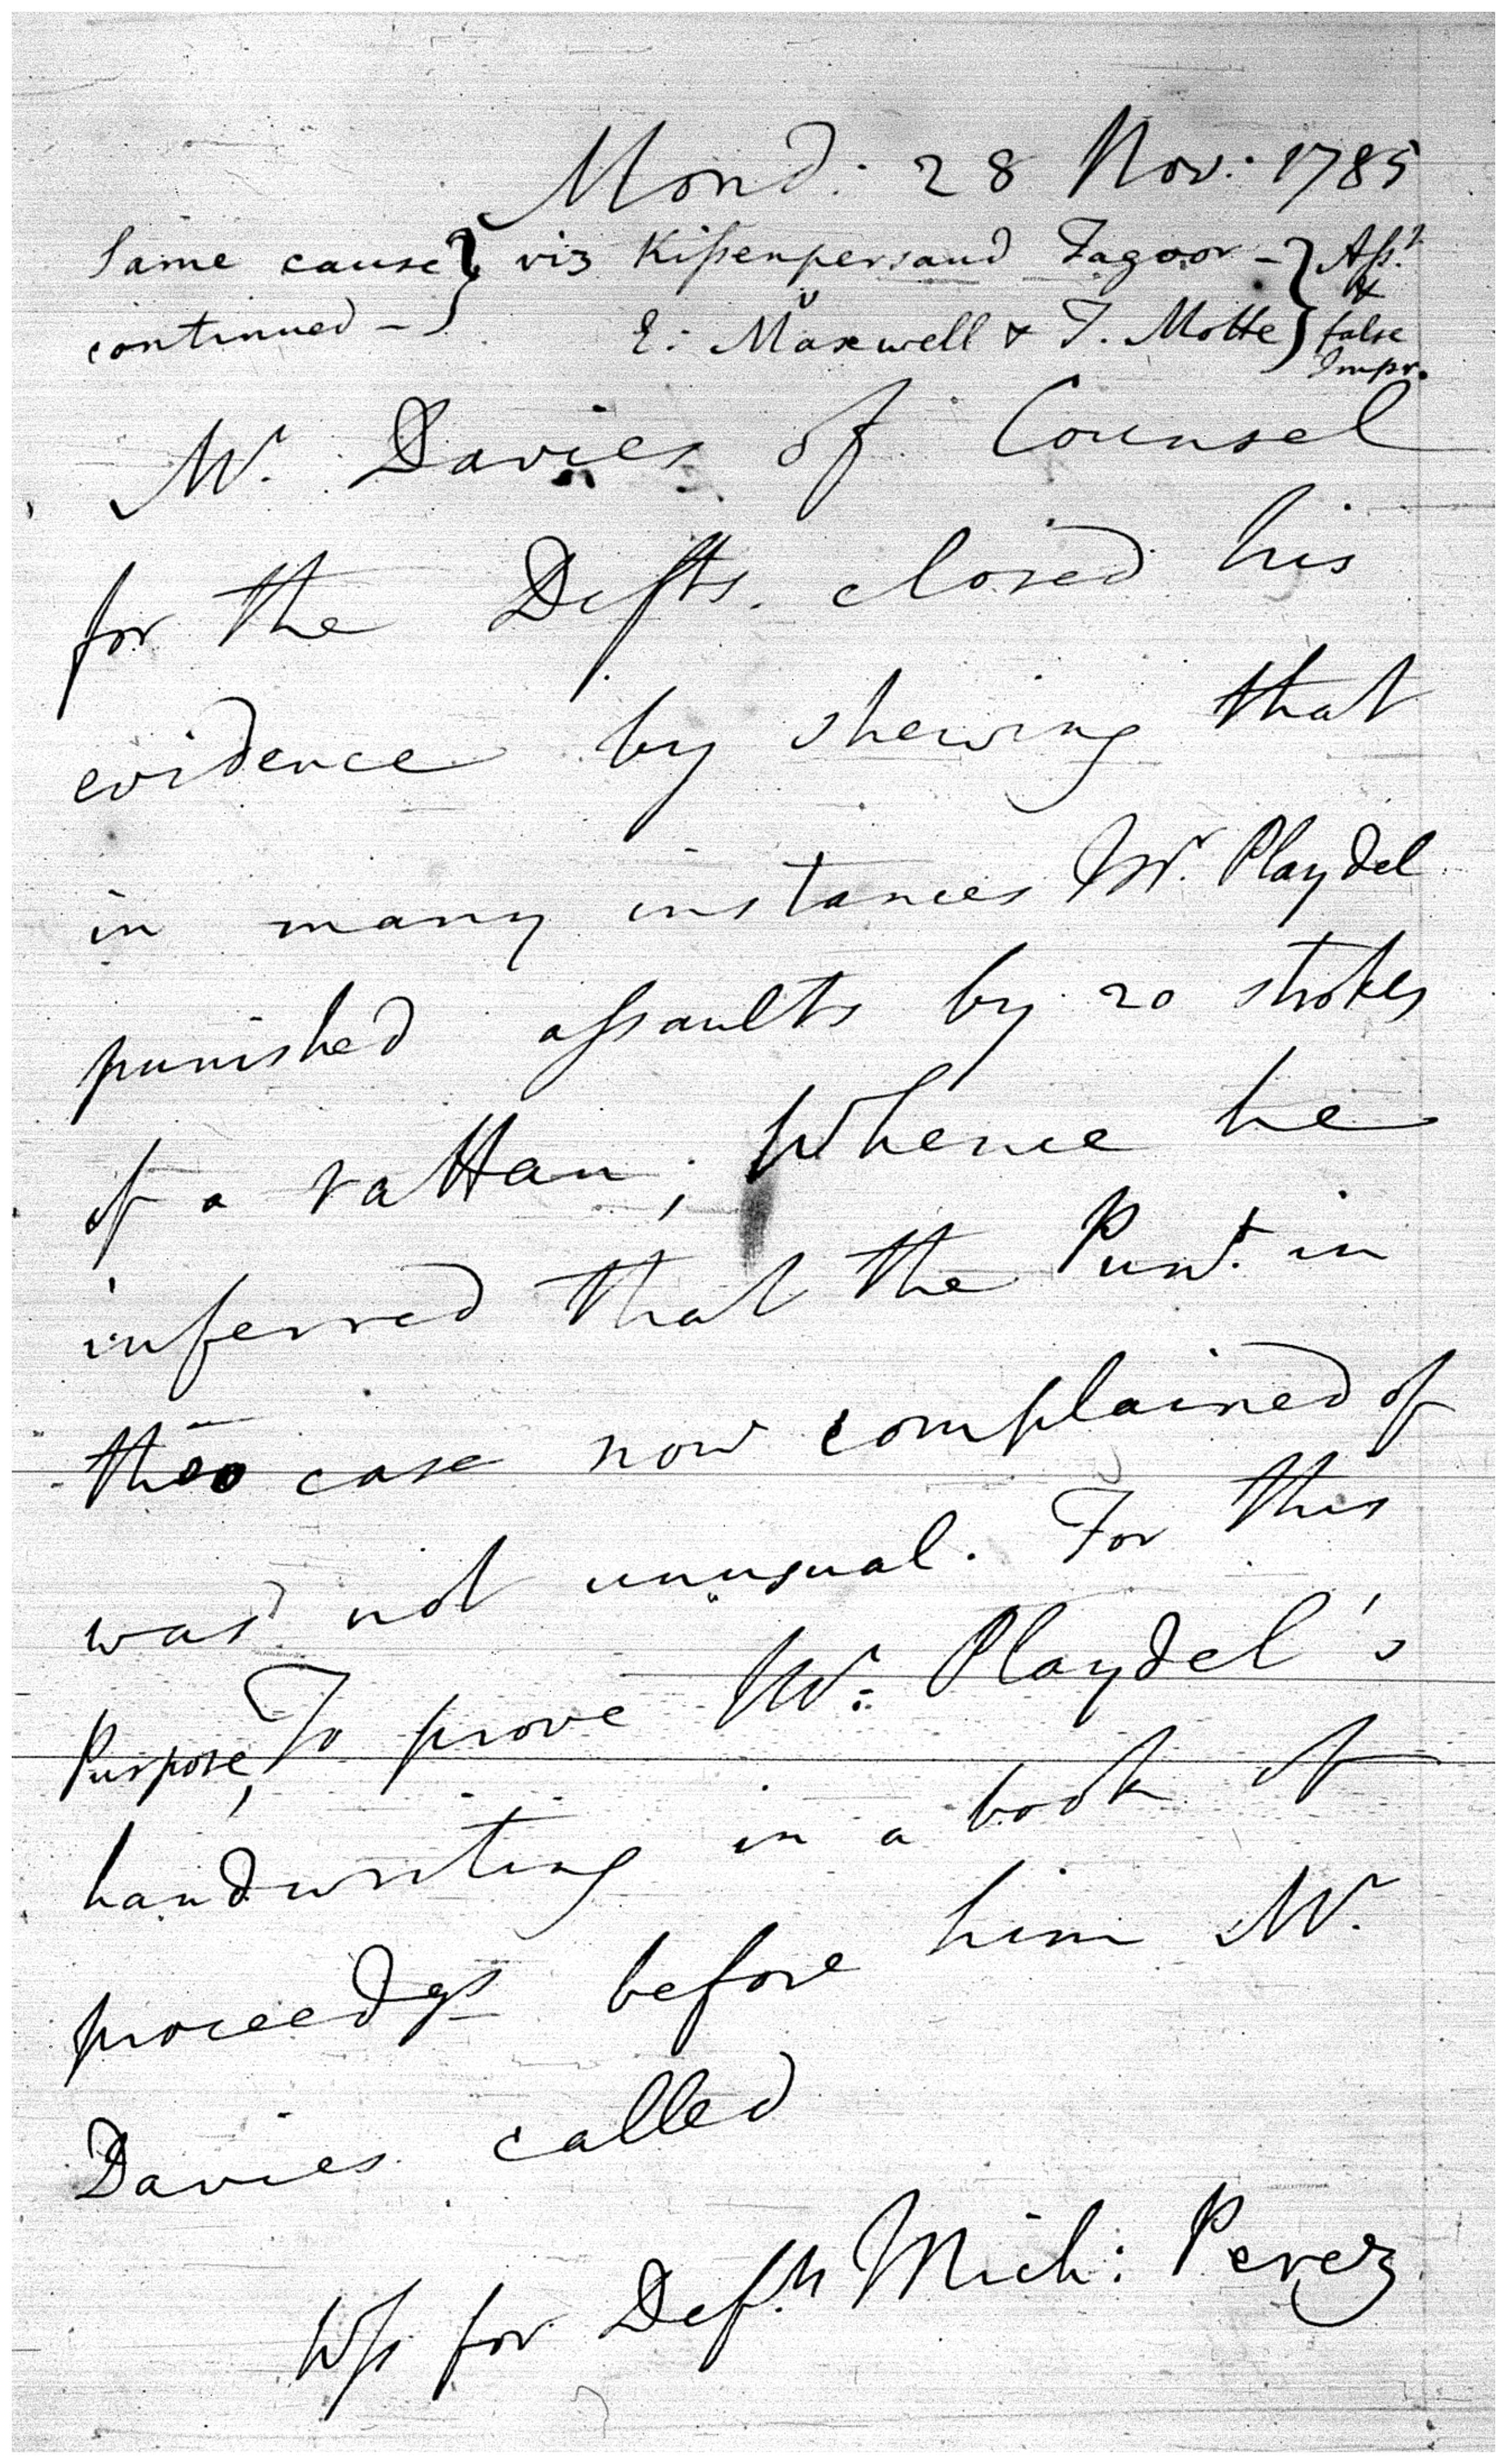 Mond: 28 Nov: 1785
Same cause } viz Kissenpersaud Tagoor - } Asst.
continued - } v &
E: Maxwell & T. Motte } false
Impr.
Mr. Davies of Counsel
for the Defts. closed his
evidence by shewing that
in many instances Mr. Playdel
punished assaults by 20 strokes
of a rattan; Whence he
inferred that the Punt. in
the case now complained of
was not unusual. For this
Purpose, To prove Mr. Playdel's
handwriting in a book of
proceedgs before him Mr.
Davies called
Wss for Defts Mich: Perez